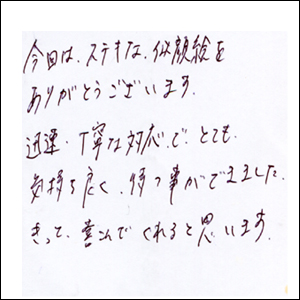 今回は、ステキな、似顔絵を
ありがとうございます.
迅速・丁寧な対応、で、とても、
気持ち良く、待つ事ができました.
きっと、喜んでくれると思います.